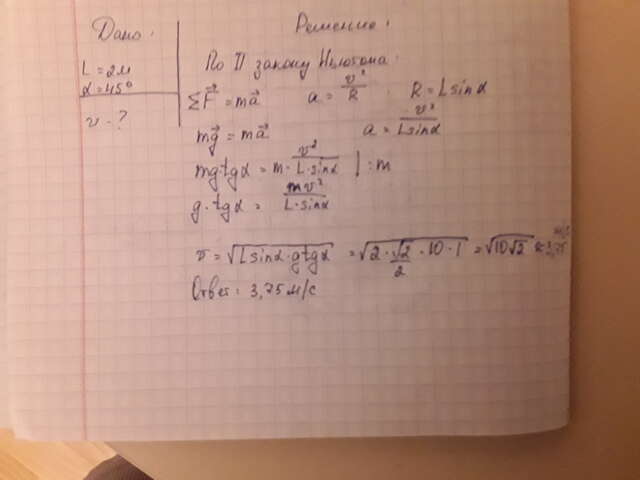 Дано:
L = 2м
α = 45°
v - ?
Решение:
По II закону Ньютона:
ΣF⃗ = ma⃗ a = v²/R R = L sinα
mg⃗ = ma⃗ a = v²/L sinα
mg·tgα = m · v²/L·sinα | : m
g·tgα = mv²/L·sinα
v = √L sinα·g tgα = √2·√2/2·10·1 = √10√2 ≈ 3,75
Ответ: 3,75 м/с